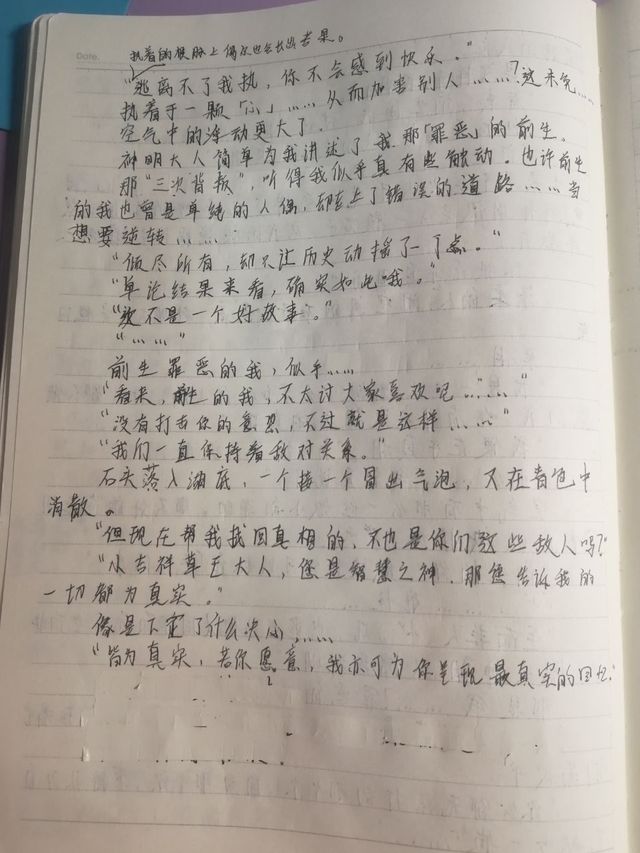 Date.
执着的根脉上偶尔也会长出苦果。
“逃离不了我执，你不会感到快乐。”
执着于一颗「心」……从而加害别人……？这未免……
空气中的浮动更大了。
神明大人简单为我讲述了我那「罪恶」的前生。
那“三次背叛”，听得我似乎真有些触动。也许前生
的我也曾是单纯的人偶，却走上了错误的道路……当
想要逆转……
“倾尽所有，却只让历史动摇了一丁点。”
“单论结果来看，确实如此哦。”
“真不是一个好故事。”
“……”
前生罪恶的我，似乎……
“看来，前生的我，不太讨大家喜欢吧……”
“没有打击你的意思，不过就是这样……”
“我们一直保持着敌对关系。”
石头落入湖底，一个接一个冒出气泡，又在青色中
消散。
“但现在帮我找回真相的，不也是你们这些敌人吗？”
“小吉祥草王大人，您是智慧之神，那您告诉我的
一切都为真实。”
像是下定了什么决心……
“皆为真实，若你愿意，我亦可为你呈现最真实的回忆。”